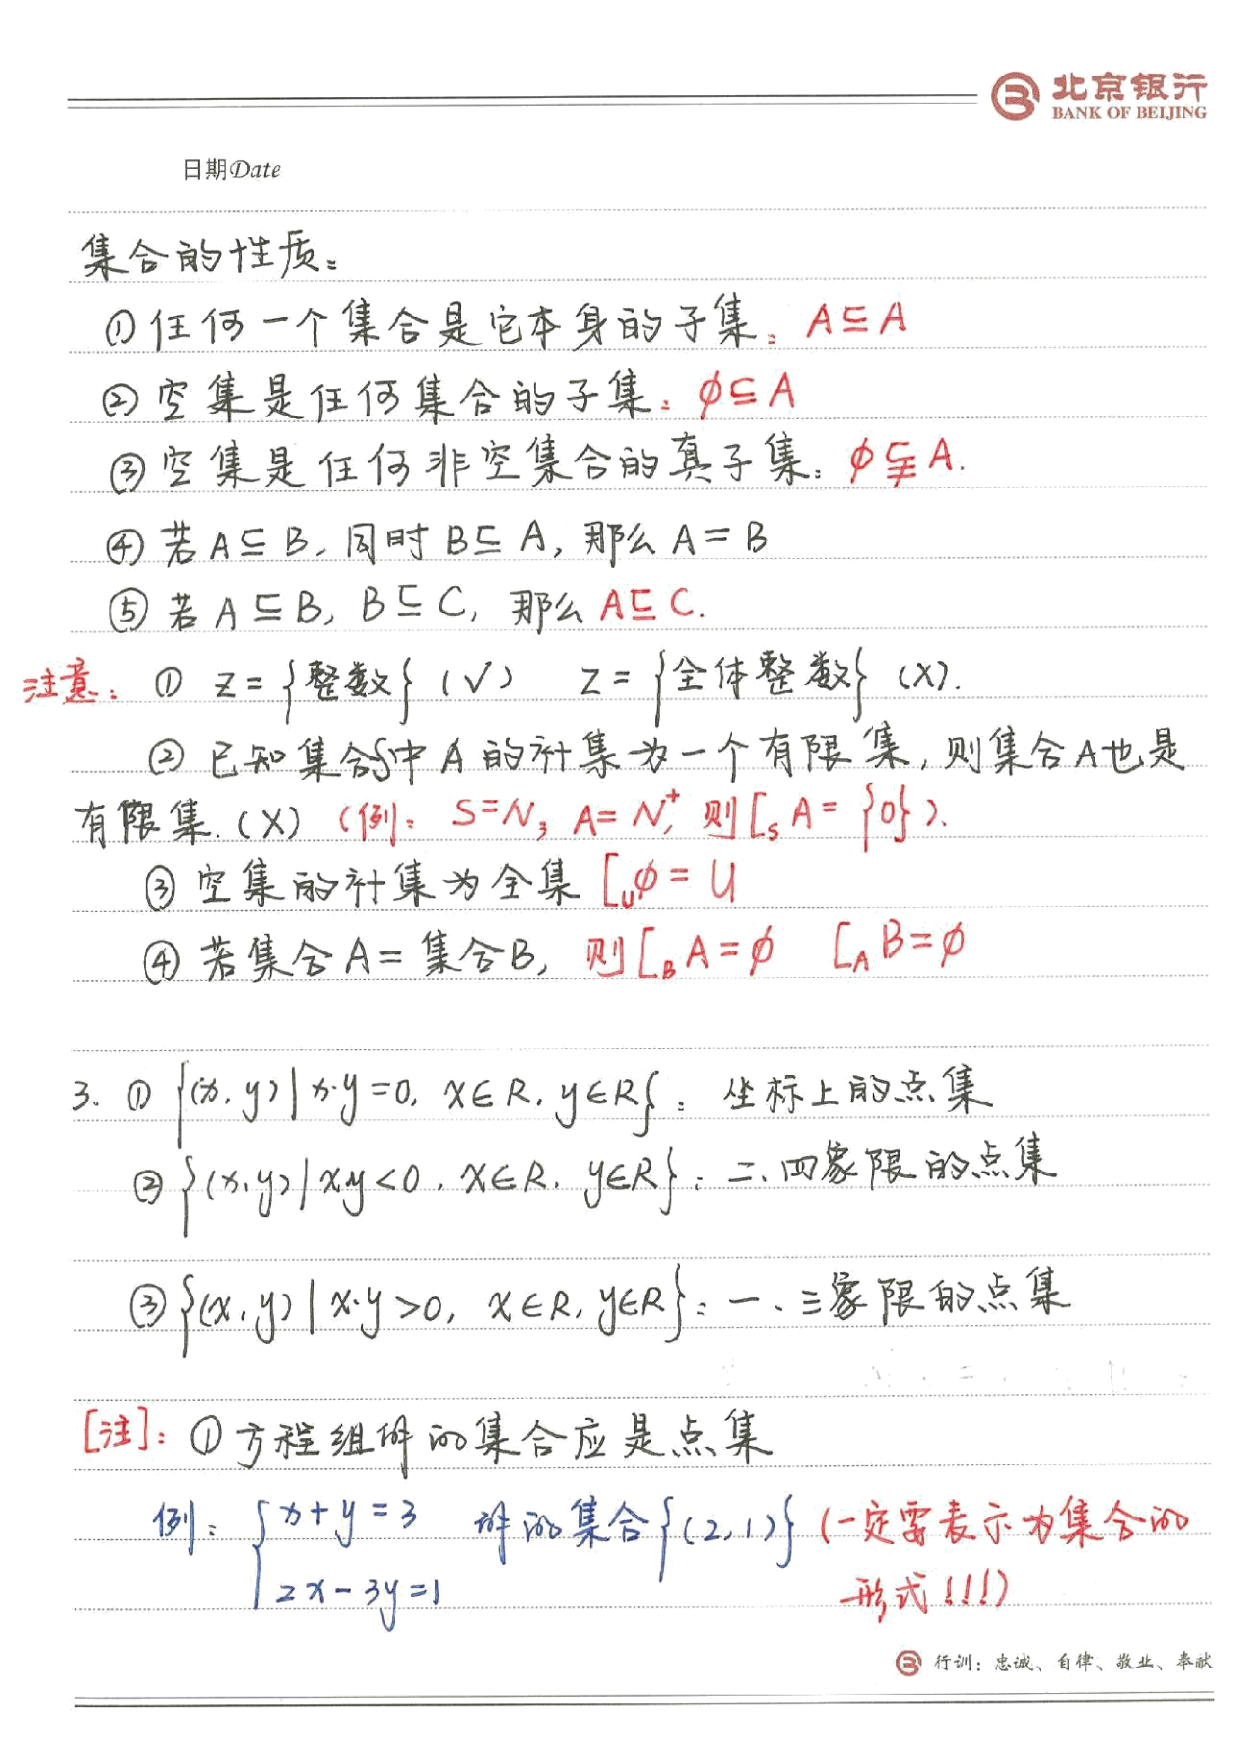 北京银行
BANK OF BEIJING
日期Date
集合的性质：
①任何一个集合是它本身的子集：A⊆A
②空集是任何集合的子集：φ⊆A
③空集是任何非空集合的真子集：φ⫋A.
④若A⊆B,同时B⊆A,那么A=B
⑤若A⊆B, B⊆C, 那么A⊆C.
注意：① Z={整数}(√) Z={全体整数}(X).
②已知集合S中A的补集为一个有限集,则集合A也是
有限集.(X)(例：S=N; A=N⁺,则[ₛA={0}).
③空集的补集为全集[ᵤφ=U
④若集合A=集合B, 则[_B A=φ [_A B=φ
3. ①{(x,y)|x·y=0, x∈R, y∈R}：坐标上的点集
②{(x,y)|xy<0, x∈R, y∈R}：二、四象限的点集
③{(x,y)|x·y>0, x∈R, y∈R}：一、三象限的点集
[注]：①方程组解的集合应是点集
例：{x+y=3 解的集合{(2,1)}(一定需表示为集合的
2x-3y=1 形式!!!)
行训：忠诚、自律、敬业、奉献